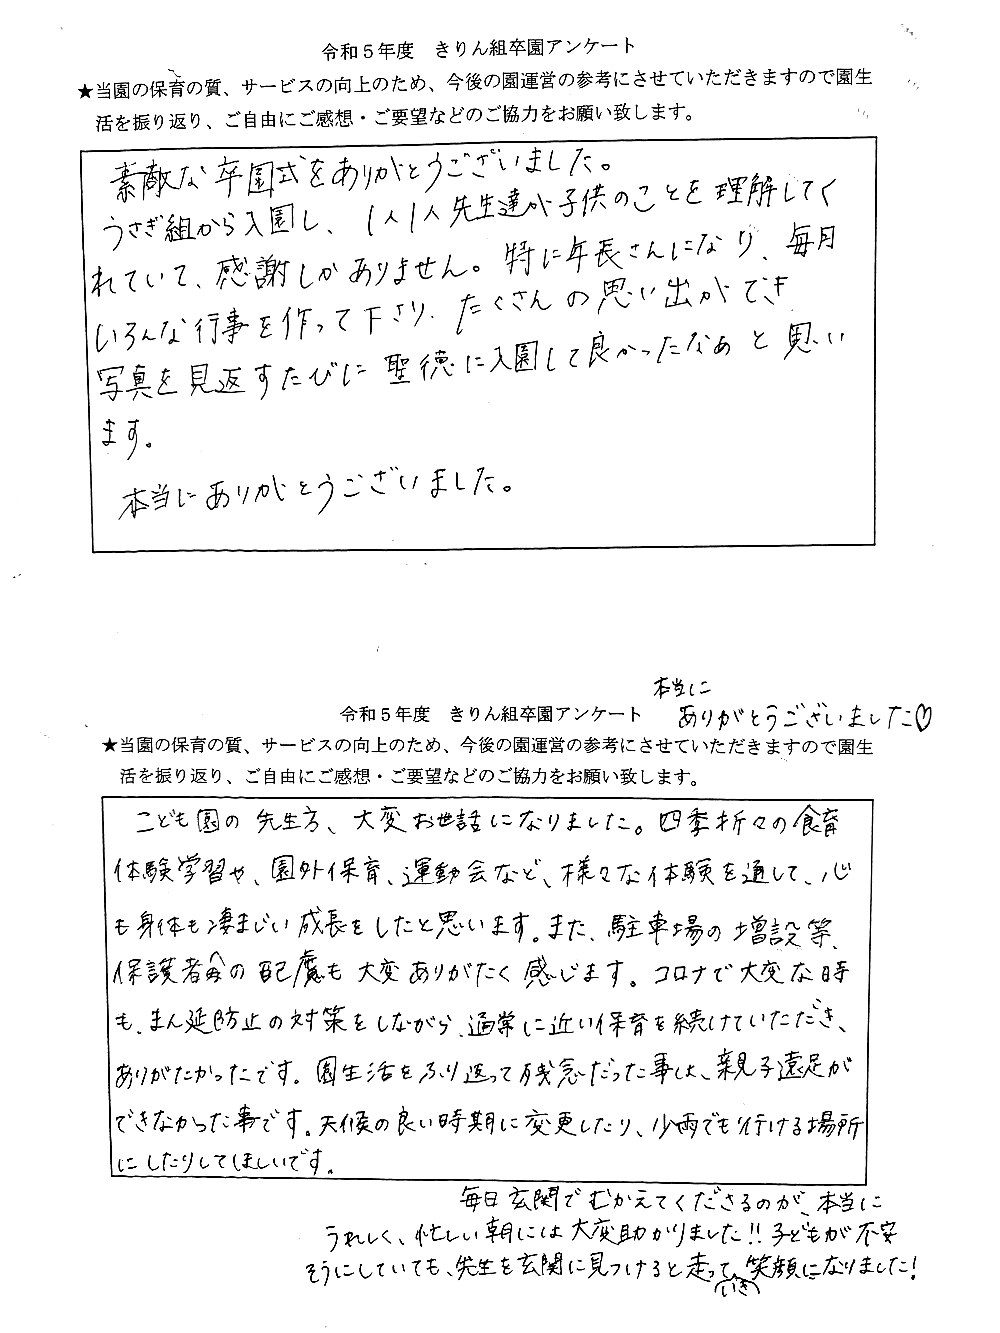 令和５年度　きりん組卒園アンケート
★当園の保育の質、サービスの向上のため、今後の園運営の参考にさせていただきますので園生
活を振り返り、ご自由にご感想・ご要望などのご協力をお願い致します。
素敵な卒園式をありがとうございました。
うさぎ組から入園し、1人1人先生達が子供のことを理解してく
れていて、感謝しかありません。特に年長さんになり、毎月
いろんな行事を作って下さり、たくさんの思い出ができ
写真を見返すたびに聖徳に入園して良かったなぁと思い
ます。
本当にありがとうございました。
本当に
令和５年度　きりん組卒園アンケート　ありがとうございました♡
★当園の保育の質、サービスの向上のため、今後の園運営の参考にさせていただきますので園生
活を振り返り、ご自由にご感想・ご要望などのご協力をお願い致します。
こども園の先生方、大変お世話になりました。四季折々の食育
体験学習や、園外保育、運動会など、様々な体験を通して、心
も身体も凄まじい成長をしたと思います。また、駐車場の増設等、
保護者への配慮も大変ありがたく感じます。コロナで大変な時
も、まん延防止の対策をしながら、通常に近い保育を続けていただき、
ありがたかったです。園生活をふり返って残念だった事は、親子遠足が
できなかった事です。天候の良い時期に変更したり、少雨でも行ける場所
にしたりしてほしいです。
毎日玄関でむかえてくださるのが、本当に
うれしく、忙しい朝には大変助かりました!!子どもが不安
そうにしていても、先生を玄関に見つけると走っていき笑顔になりました!